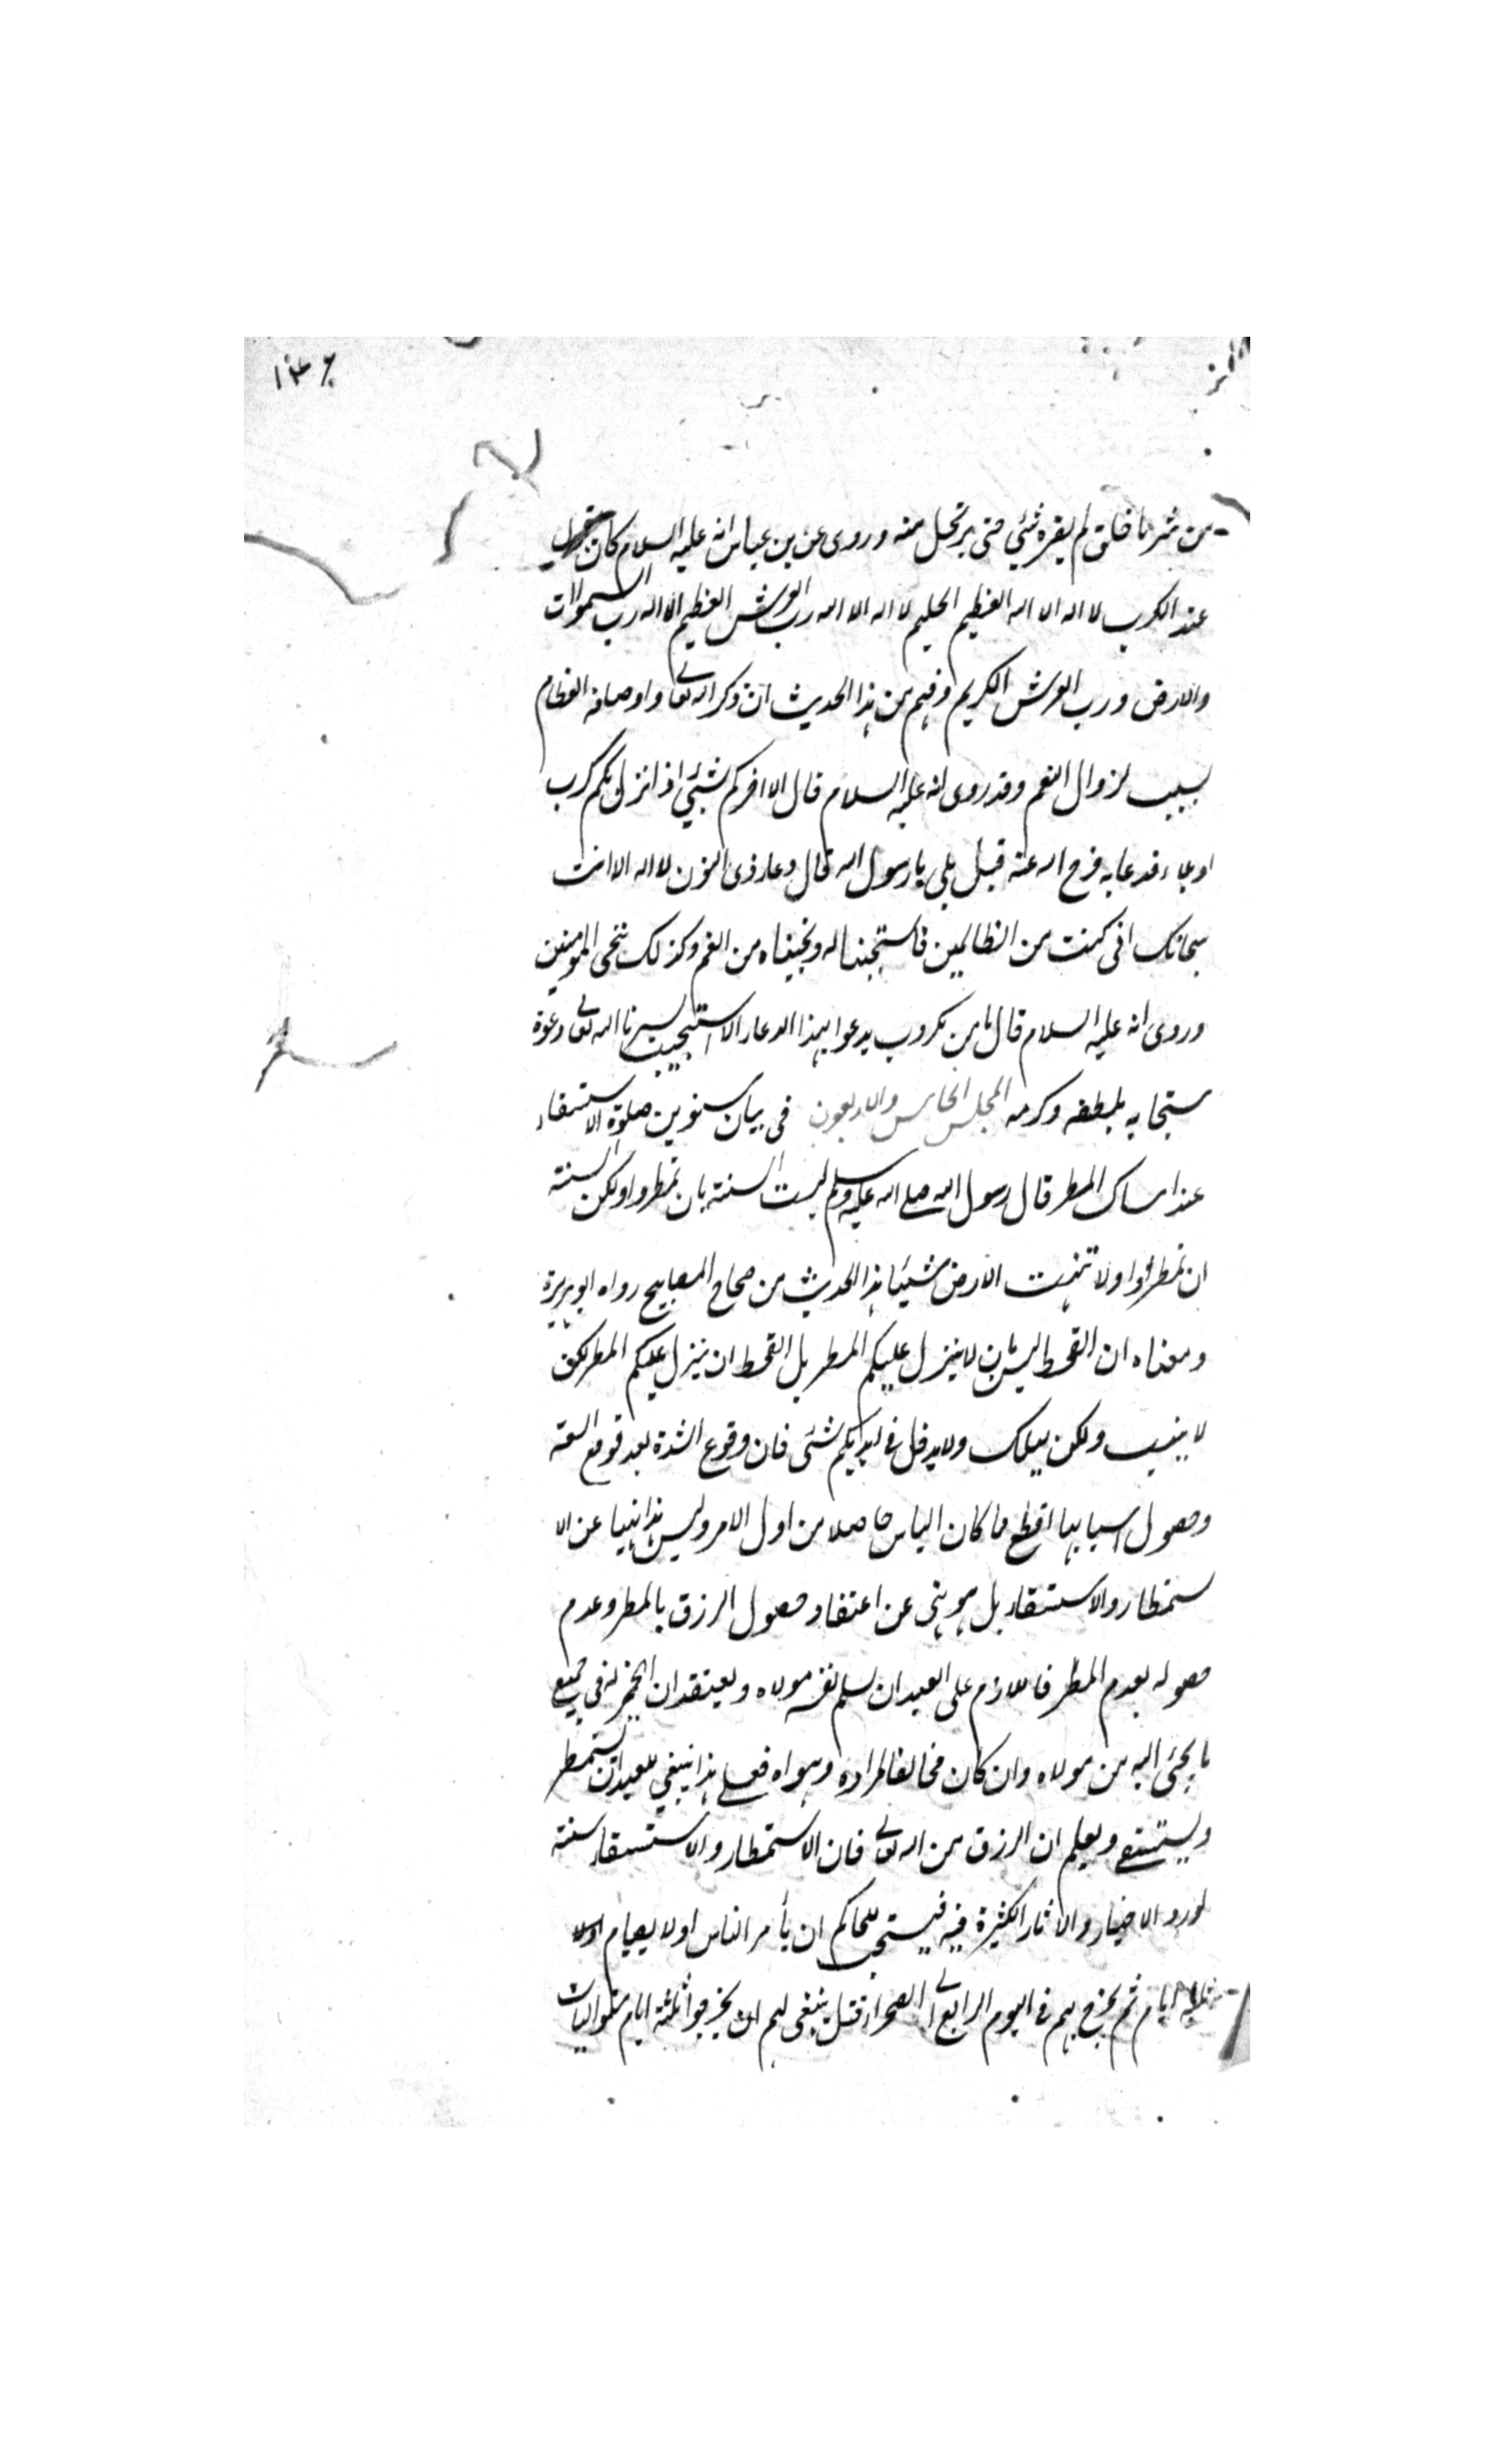 ١٤٦
من شر ما خلق لم يضره شئ حتى يرتحل منه وروى عن بن عباس انه عليه السلام كان يقول
عند الكرب لا اله الا الله العظيم الحليم لا اله الا الله رب العرش العظيم لا اله رب السموات
والارض ورب العرش الكريم وفهم من هذا الحديث ان ذكر الله تعالى واوصافه العظام
سبب لزوال الغم وقد روى انه عليه السلام قال الا اخبركم بشئ اذا نزل بكم كرب
او بلاء فدعا به فرج الله عنه قيل بلى يا رسول الله قال دعاء ذى النون لا اله الا انت
سبحانك انى كنت من الظالمين فاستجبنا له ونجيناه من الغم وكذلك ننجى المؤمنين
وروى انه عليه السلام قال ما من مكروب يدعوا بهذا الدعاء الا استجيب يسرنا الله تعالى دعوة
مستجابه بلطفه وكرمه المجلس الخامس والاربعون فى بيان سنوين صلوة الاستسقاء
عند امساك المطر قال رسول الله صلى الله عليه وسلم ليست السنة بان تمطروا ولكن السنة
ان تمطروا ولا تنبت الارض شيئا هذا الحديث من صحاح المصابيح رواه ابو هريرة
ومعناه ان القحط ليس بان لا ينزل عليكم المطر بل القحط ان ينزل عليكم المطر لكن
لا ينبت ولكن يهلك ولا يدخل فى ايديكم شئ فان وقوع الشدة بعد توقع السعة
وحصول اسبابها اقطع ما كان الياس حاصلا من اول الامر وليس هذا نهيا عن الا
ستمطار والاستسقاء بل هو نهى عن اعتقاد حصول الرزق بالمطر وعدم
حصوله بعدم المطر فاللازم على العبد ان يسلم نفسه مولاه ويعتقد ان الخير له فى جميع
ما يجئ اليه من مولاه وان كان مخالفا لمراده وهواه فعلى هذا ينبغى للعبد ان يستمطر
ويستسقى ويعلم ان الرزق من الله تعالى فان الاستمطار والاستسقاء سنة
لورود الاخبار والاثار الكثيرة فيه فيستحب للحاكم ان يأمر الناس اولا بصيام اولا
ثلثة ايام ثم يخرج بهم فى اليوم الرابع الى الصحراء وقيل ينبغى لهم ان يخرجوا ثلثة ايام متواليات